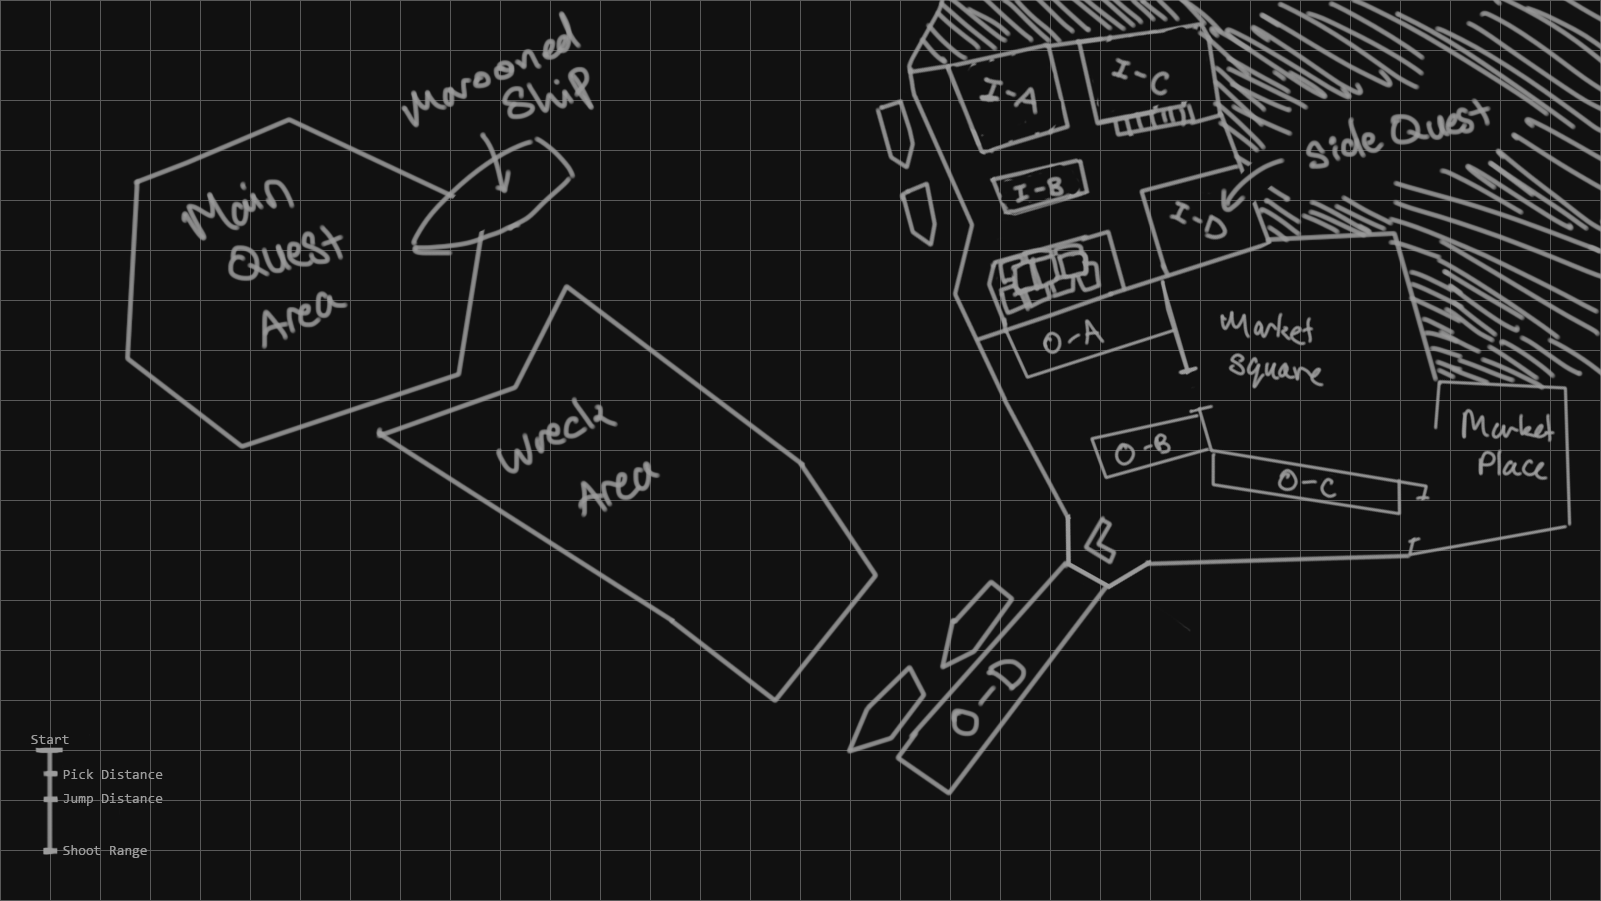 Marooned
Ship
Main
Quest
Area
Wreck
Area
I-A
I-C
I-B
I-D
Side Quest
O-A
Market
Square
O-B
O-C
Market
Place
O-D
Start
Pick Distance
Jump Distance
Shoot Range